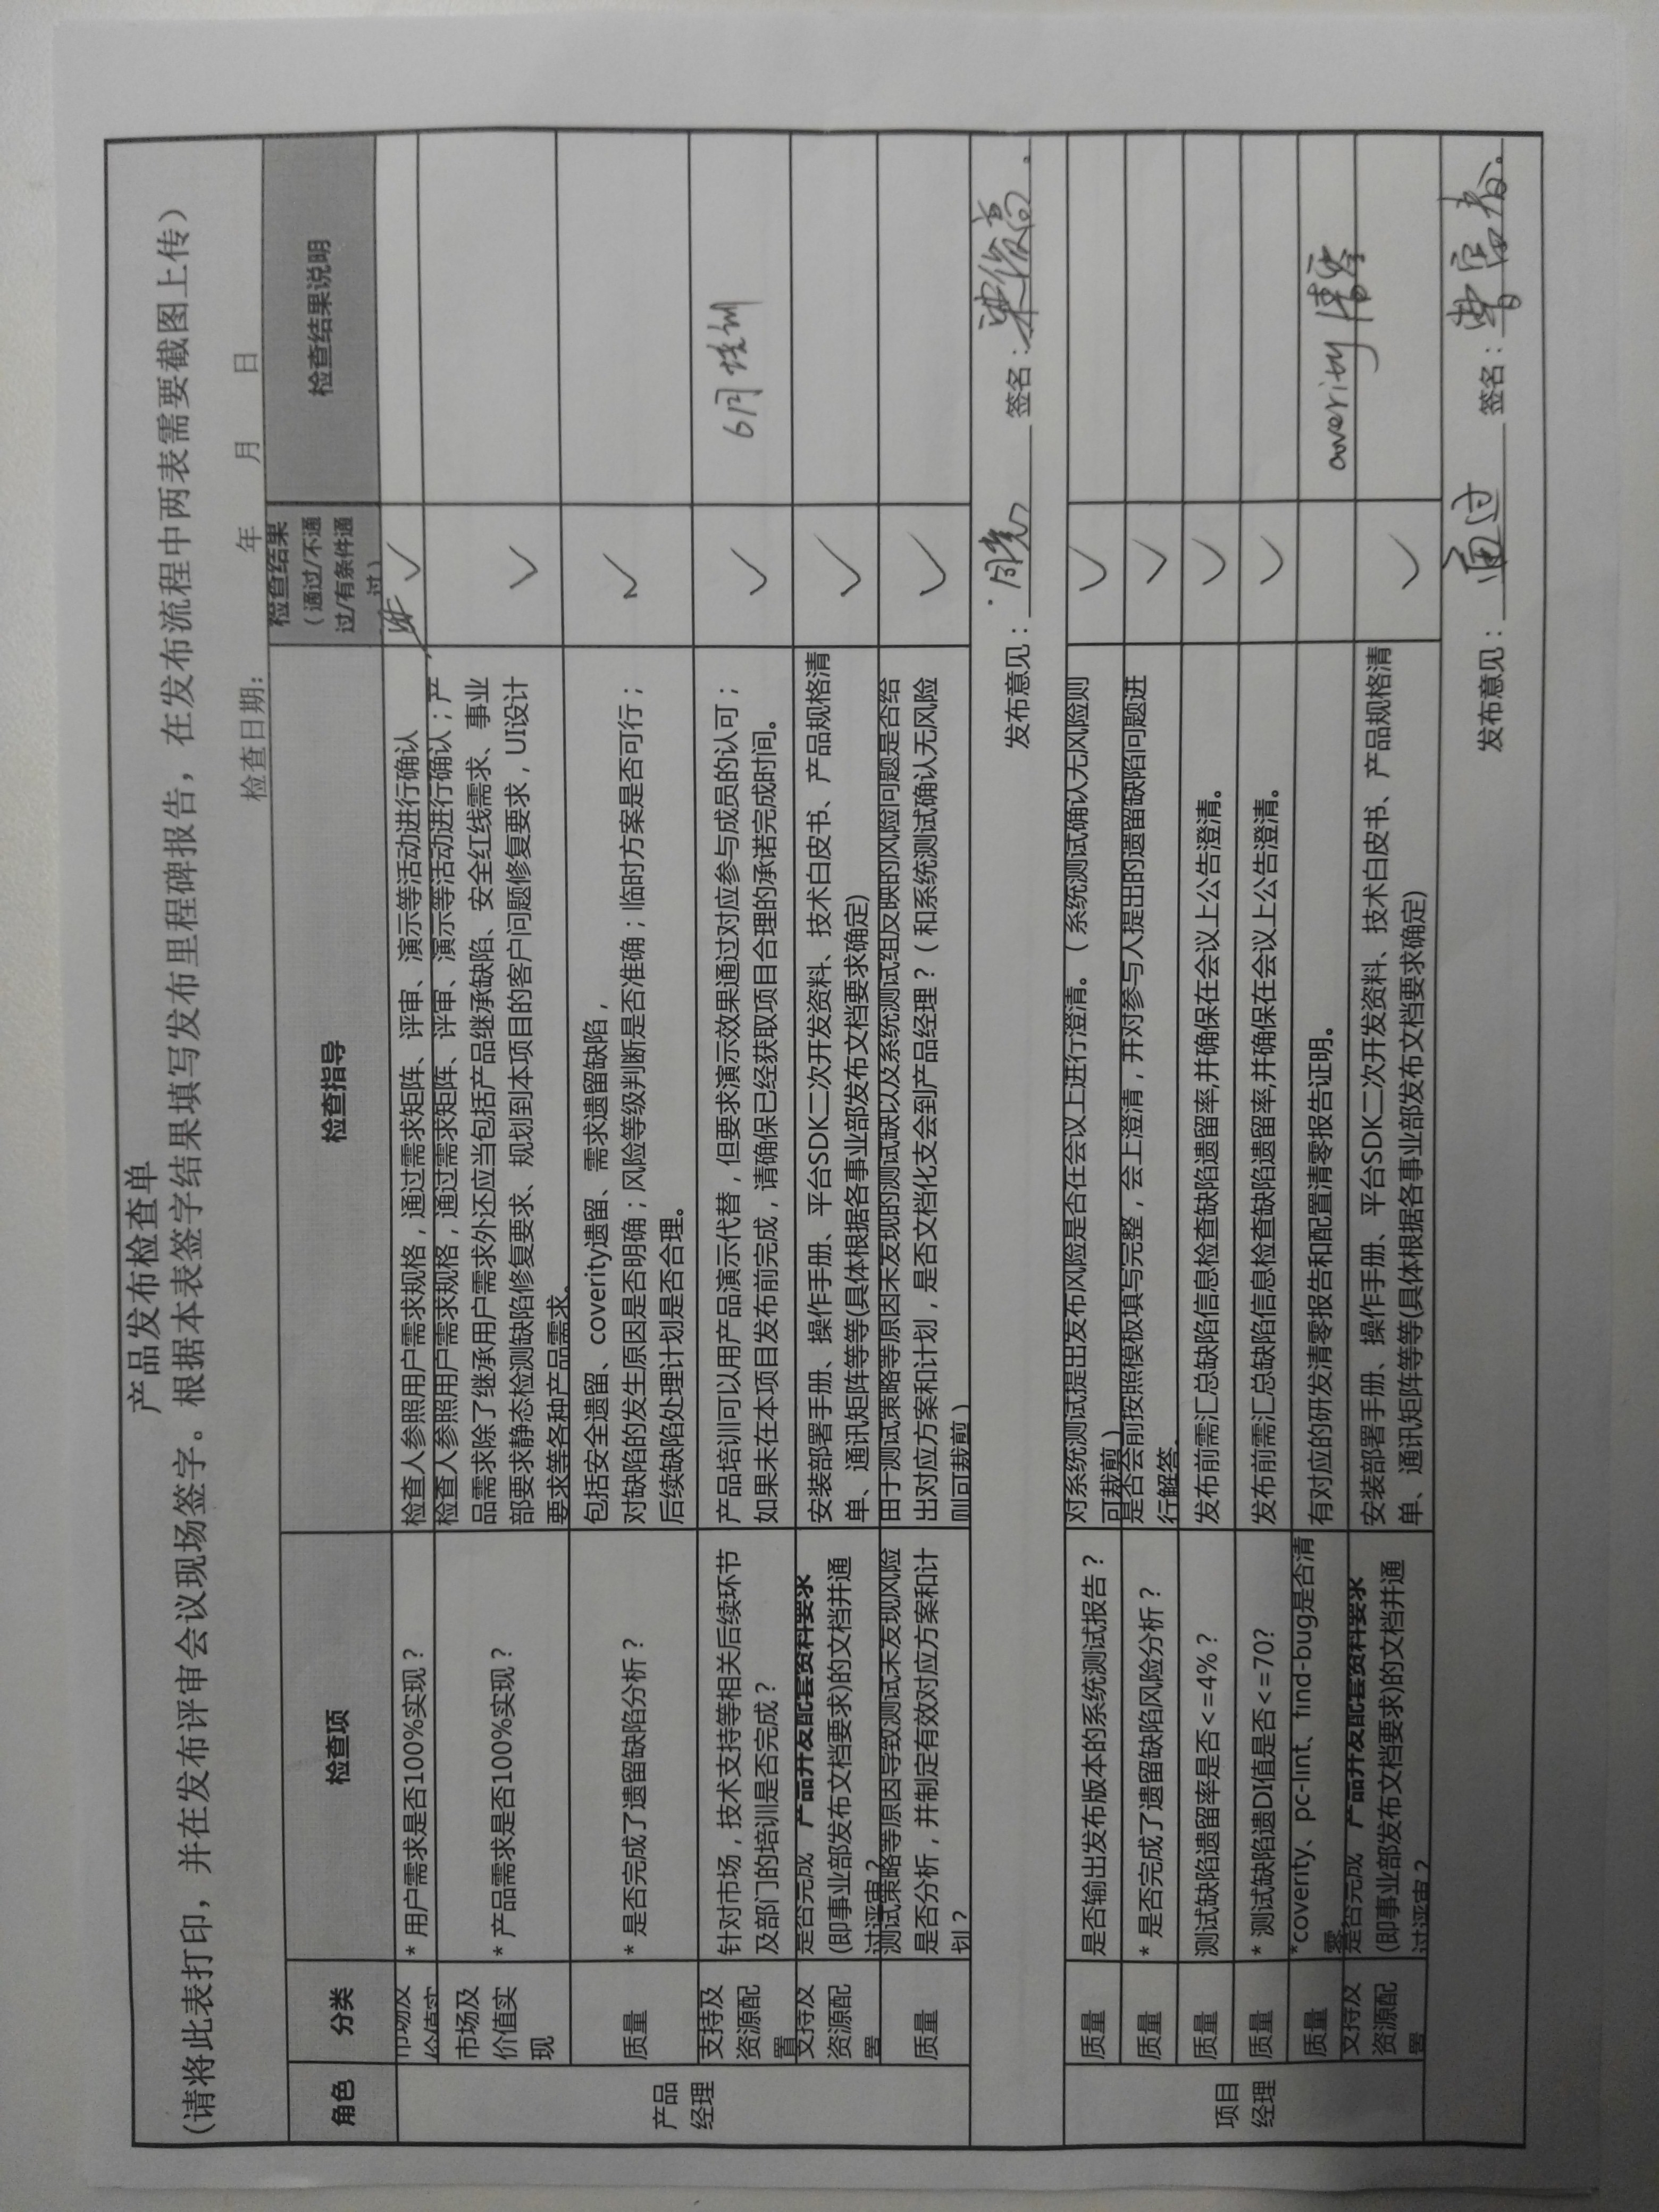 产品发布检查单
(请将此表打印，并在发布评审会议现场签字。根据本表签字结果填写发布里程碑报告，在发布流程中两表需要截图上传)
检查日期： 年 月 日
角色 分类 检查项 检查指导 检查结果（通过/不通过/有条件通过） 检查结果说明
产品经理
市场及价值实
* 用户需求是否100%实现？
检查人参照用户需求规格，通过需求矩阵、评审、演示等活动进行确认
✓
市场及价值实现
* 产品需求是否100%实现？
检查人参照用户需求规格，通过需求矩阵、评审、演示等活动进行确认；产
品需求除了继承用户需求外还应当包括产品继承缺陷、安全红线需求、事业
部要求静态检测缺陷修复要求、规划到本项目的客户问题修复要求，UI设计
要求等各种产品需求。
✓
质量
* 是否完成了遗留缺陷分析？
包括安全遗留、coverity遗留、需求遗留缺陷，
对缺陷的发生原因是否明确；风险等级判断是否准确；临时方案是否可行；
后续缺陷处理计划是否合理。
✓
支持及资源配置
针对市场，技术支持等相关后续环节
及部门的培训是否完成？
产品培训可以用产品演示代替，但要求演示效果通过对应参与成员的认可；
如果未在本项目发布前完成，请确保已经获取项目合理的承诺完成时间。
✓
6月培训
支持及资源配置
是否完成 产品开发配套资料要求
(即事业部发布文档要求)的文档并通
过评审？
安装部署手册、操作手册、平台SDK二次开发资料、技术白皮书、产品规格清
单、通讯矩阵等等(具体根据各事业部发布文档要求确定)
✓
质量
测试策略等原因导致测试未发现风险
是否分析，并制定有效对应方案和计
划？
由于测试策略等原因未发现的测试缺以及系统测试组反映的风险问题是否给
出对应方案和计划，是否文档化支会到产品经理？（和系统测试确认无风险
则可裁剪）
✓
发布意见： 签名：
项目经理
质量
是否输出发布版本的系统测试报告？
对系统测试提出发布风险是否在会议上进行澄清。（系统测试确认无风险则
可裁剪）
✓
质量
* 是否完成了遗留缺陷风险分析？
是否会前按照模板填写完整，会上澄清，开对参与人提出的遗留缺陷问题进
行解答。
✓
质量
测试缺陷遗留率是否<=4%？
发布前需汇总缺陷信息检查缺陷遗留率,并确保在会议上公告澄清。
✓
质量
* 测试缺陷遗DI值是否<=70?
发布前需汇总缺陷信息检查缺陷遗留率,并确保在会议上公告澄清。
✓
质量
*coverty、pc-lint、find-bug是否清
零
有对应的研发清零报告和配置清零报告证明。
支持及资源配置
是否完成 产品开发配套资料要求
(即事业部发布文档要求)的文档并通
过评审？
安装部署手册、操作手册、平台SDK二次开发资料、技术白皮书、产品规格清
单、通讯矩阵等等(具体根据各事业部发布文档要求确定)
✓
发布意见：通过 签名：